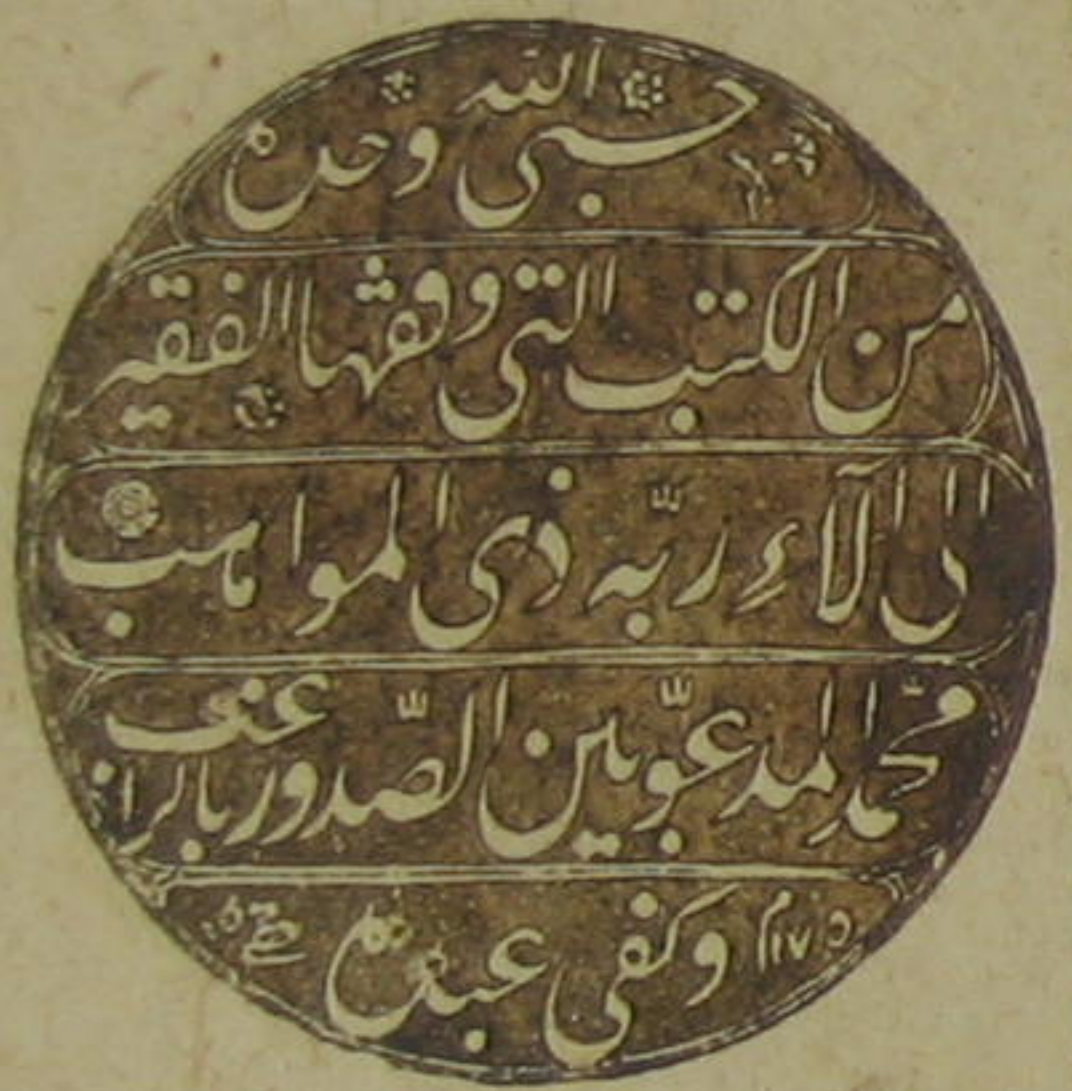 حسبی الله وحده
من الكتب التی وقفها الفقير
الی الآء ربّه ذی المواهب
محمّد المدعوّ بين الصّدور بالراغب
وكفی عبده